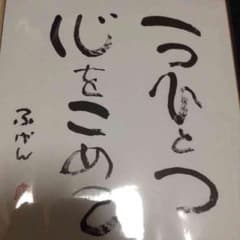 一つひとつ
心をこめて
ふげん